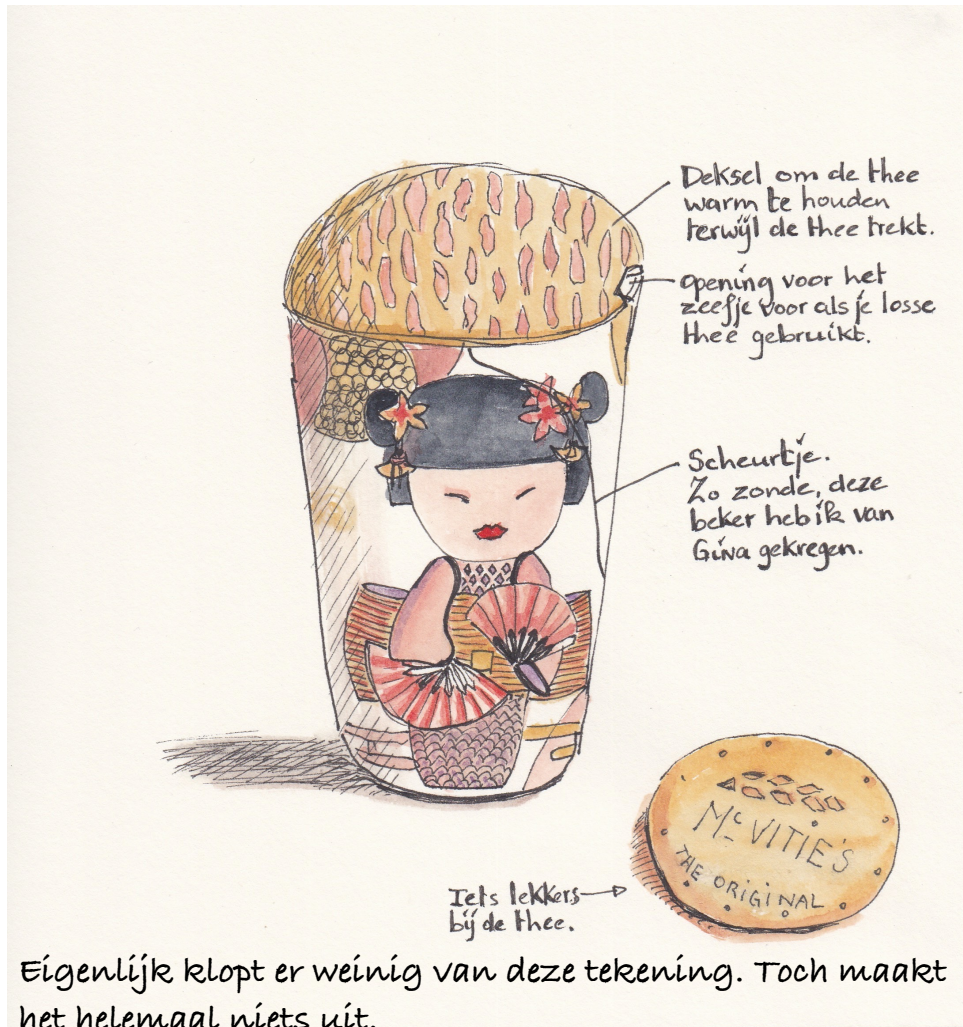 Deksel om de thee
warm te houden
terwijl de thee trekt.
opening voor het
zeefje voor als je losse
thee gebruikt.
Scheurtje.
Zo zonde, deze
beker heb ik van
Gina gekregen.
Mc VITIE'S
THE ORIGINAL
Iets lekkers
bij de thee.
Eigenlijk klopt er weinig van deze tekening. Toch maakt
het helemaal niets uit.